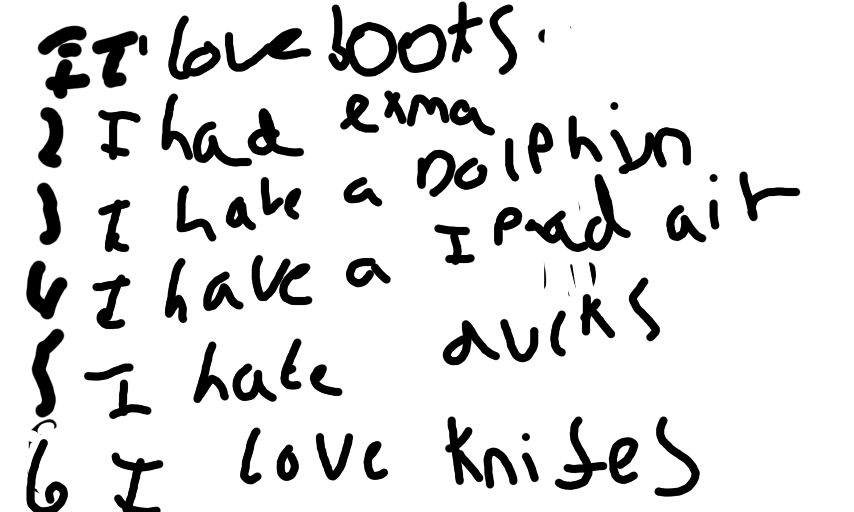 1 I love boots.
2 I had exma
3 I hate a Dolphin
4 I have a I Pad air
5 I hate ducks
6 I love knifes